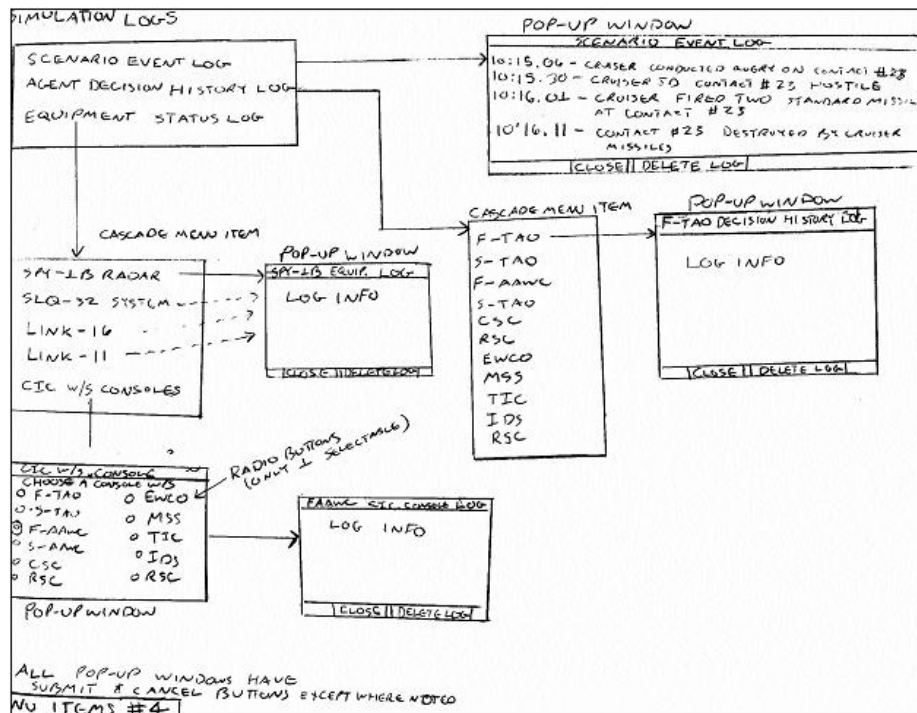 SIMULATION LOGS
SCENARIO EVENT LOG
AGENT DECISION HISTORY LOG
EQUIPMENT STATUS LOG
POP-UP WINDOW
SCENARIO EVENT LOG
10:15.06 - CRASER CONDUCTED QUERY ON CONTACT #23
10:15.30 - CRUISER ID CONTACT #23 HOSTILE
10:16.01 - CRUISER FIRED TWO STANDARD MISSIL
AT CONTACT #23
10:16.11 - CONTACT #23 DESTROYED BY CRUISER
MISSILES
CLOSE DELETE LOG
CASCADE MENU ITEM
SPY-1B RADAR
SLQ-32 SYSTEM
LINK-16
LINK-11
CIC W/S CONSOLES
POP-UP WINDOW
SPY-1B EQUIP. LOG
LOG INFO
CLOSE DELETE LOG
CASCADE MENU ITEM
F-TAO
S-TAO
F-AAWC
S-TAO
CSC
RSC
EWCO
MSS
TIC
IDS
RSC
POP-UP WINDOW
F-TAO DECISION HISTORY LOG
LOG INFO
CLOSE DELETE LOG
CIC W/S CONSOLE
CHOOSE A CONSOLE W/S
F-TAO
S-TAO
F-AAWC
S-AAWC
CSC
RSC
EWCO
MSS
TIC
IDS
RSC
POP-UP WINDOW
RADIO BUTTONS
(ONLY 1 SELECTABLE)
FAAWC CIC CONSOLE LOG
LOG INFO
CLOSE DELETE LOG
ALL POP-UP WINDOWS HAVE
SUBMIT & CANCEL BUTTONS EXCEPT WHERE NOTED
NU ITEMS #4